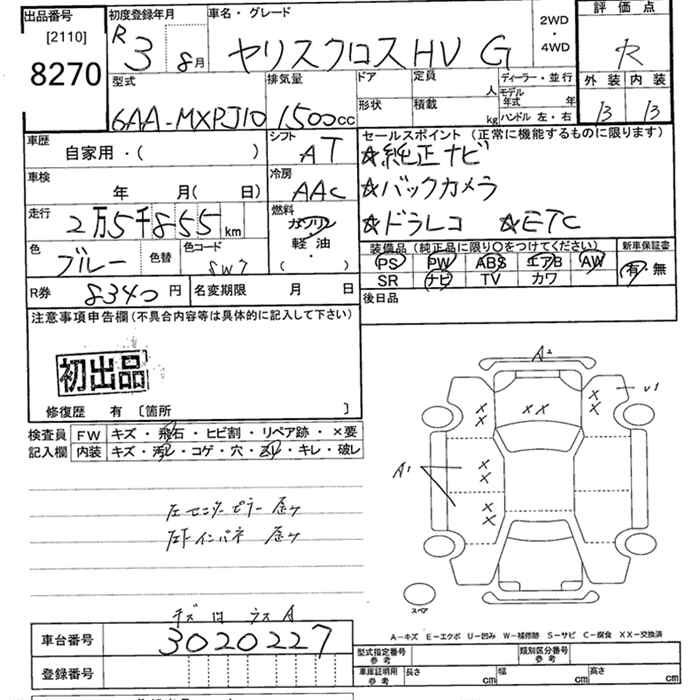 出品番号
[2110]
8270
初度登録年月
R 3 8月
車名・グレード
ヤリスクロスHV G
2WD
・
4WD
評価点
R
外装 内装
B B
型式
6AA-MXPJ10
排気量
1500cc
ドア
形状
定員 人
積載 kg
ディーラー・並行
モデル年式 年
ハンドル 左・右
車歴
自家用・( )
シフト
AT
車検
年 月( 日)
冷房
AAC
走行
2万5千855km
燃料
ガソリン
軽・油
・
( )
色
ブルー
色替
色コード
8W7
R券 8340円
名変期限 月 日
セールスポイント (正常に機能するものに限ります)
☆純正ナビ
☆バックカメラ
☆ドラレコ ☆ETC
装備品 (純正品に限り○をつけてください)
PS PW ABS エアB AW
SR ナビ TV カワ
新車保証書
有・無
後日品
注意事項申告欄 (不具合内容等は具体的に記入して下さい)
初出品
修復歴 有 〔箇所 〕
検査員
記入欄
FW キズ・飛石・ヒビ割・リペア跡・×要
内装 キズ・汚レ・コゲ・穴・スレ・キレ・破レ
左センターピラー 歪ヶ
左下インパネ 歪ヶ
A2
U1
A1
スペア
A-キズ E-エクボ U-凹み W-補修跡 S-サビ C-腐食 XX-交換済
車台番号
3020227
登録番号
型式指定番号
参考
類別区分番号
参考
車庫証明用
参考
長さ cm 幅 cm 高さ cm